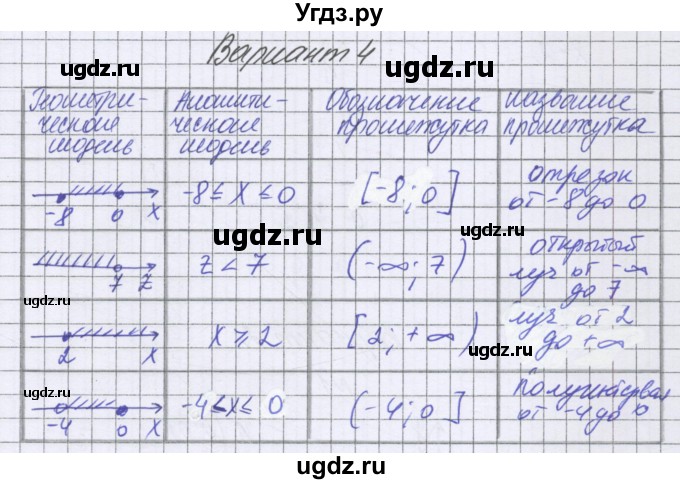 Угдз.ру
Вариант 4
Геометри- Аналити- Обозначение название
ческая ческая промежутка промежутка
модель модель
-8 0 x -8 ≤ x ≤ 0 [-8; 0] отрезок
от -8 до 0
7 z z < 7 (-∞; 7) открытый
луч от -∞
до 7
2 x x ≥ 2 [2; +∞) луч от 2
до +∞
-4 0 x -4 < x ≤ 0 (-4; 0] полуинтервал
от -4 до 0
ugdz.ru
ugdz.ru
ugdz.ru
ugdz.ru
ugdz.ru
ugdz.ru
ugdz.ru
ugdz.ru
ugdz.ru
ugdz.ru
ugdz.ru
ugdz.ru
ugdz.ru